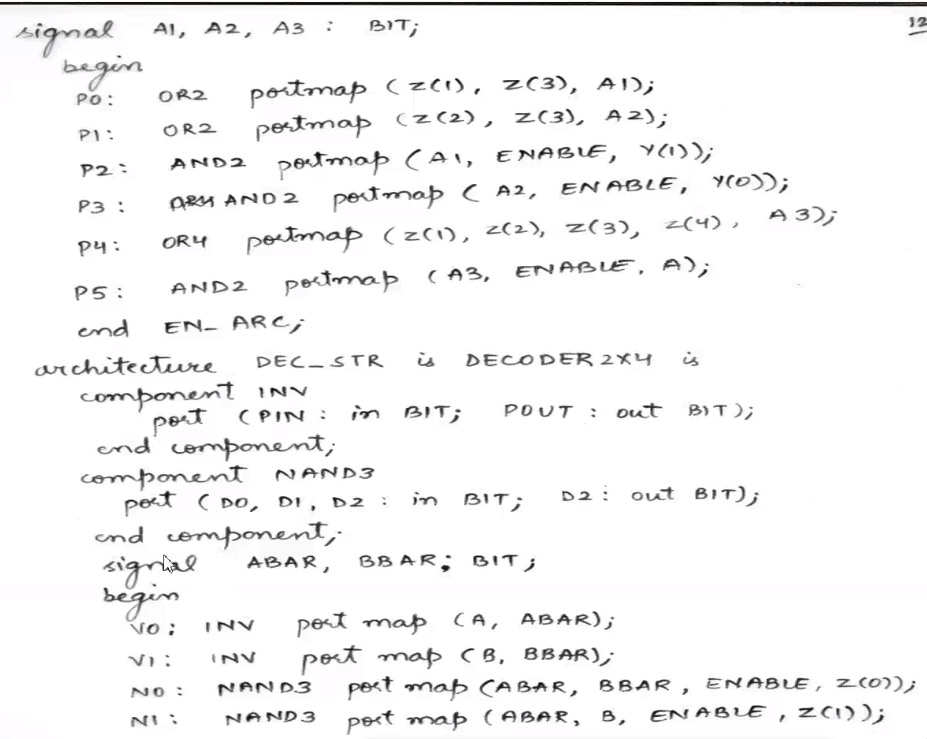 12
signal A1, A2, A3 : BIT;
begin
P0: OR2 portmap (Z(1), Z(3), A1);
P1: OR2 portmap (Z(2), Z(3), A2);
P2: AND2 portmap (A1, ENABLE, Y(1));
P3: AND2 portmap (A2, ENABLE, Y(0));
P4: OR4 portmap (Z(1), Z(2), Z(3), Z(4), A3);
P5: AND2 portmap (A3, ENABLE, A);
end EN_ARC;
architecture DEC_STR is DECODER2X4 is
component INV
port (PIN : in BIT; POUT : out BIT);
end component;
component NAND3
port (D0, D1, D2 : in BIT; D2 : out BIT);
end component;
signal ABAR, BBAR; BIT;
begin
V0; INV port map (A, ABAR);
V1: INV port map (B, BBAR);
N0: NAND3 port map (ABAR, BBAR, ENABLE, Z(0));
N1: NAND3 port map (ABAR, B, ENABLE, Z(1));